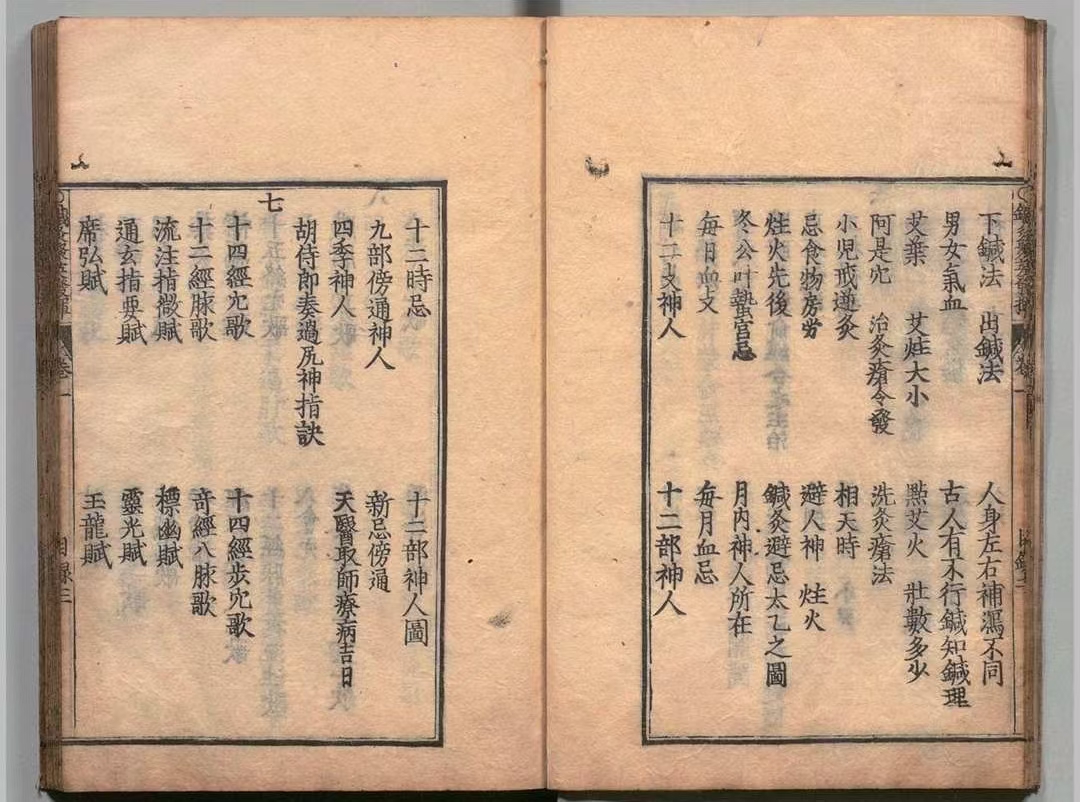 下鍼法 出鍼法 人身左右補瀉不同
男女氣血 古人有不行鍼知鍼理
艾葉 艾炷大小 點艾火 壯數多少
阿是穴 治灸瘡令發 洗灸瘡法
小兒戒逆灸 相天時
忌食物房労 避人神 炷火
炷火先後 鍼灸避忌太乙之圖
冬公叶蟄宫忌 月內神人所在
每日血支 每月血忌
十二支神人 十二部神人
十二時忌 十二部神人圖
九部傍通神人 新忌傍通
四季神人 天醫取師療病吉日
胡侍郎奏過尻神指訣
七
十四經穴歌 十四經步穴歌
十二經脉歌 奇經八脉歌
流注指微賦 標幽賦
通玄指要賦 靈光賦
席弘賦 玉龍賦
卷一 目錄三